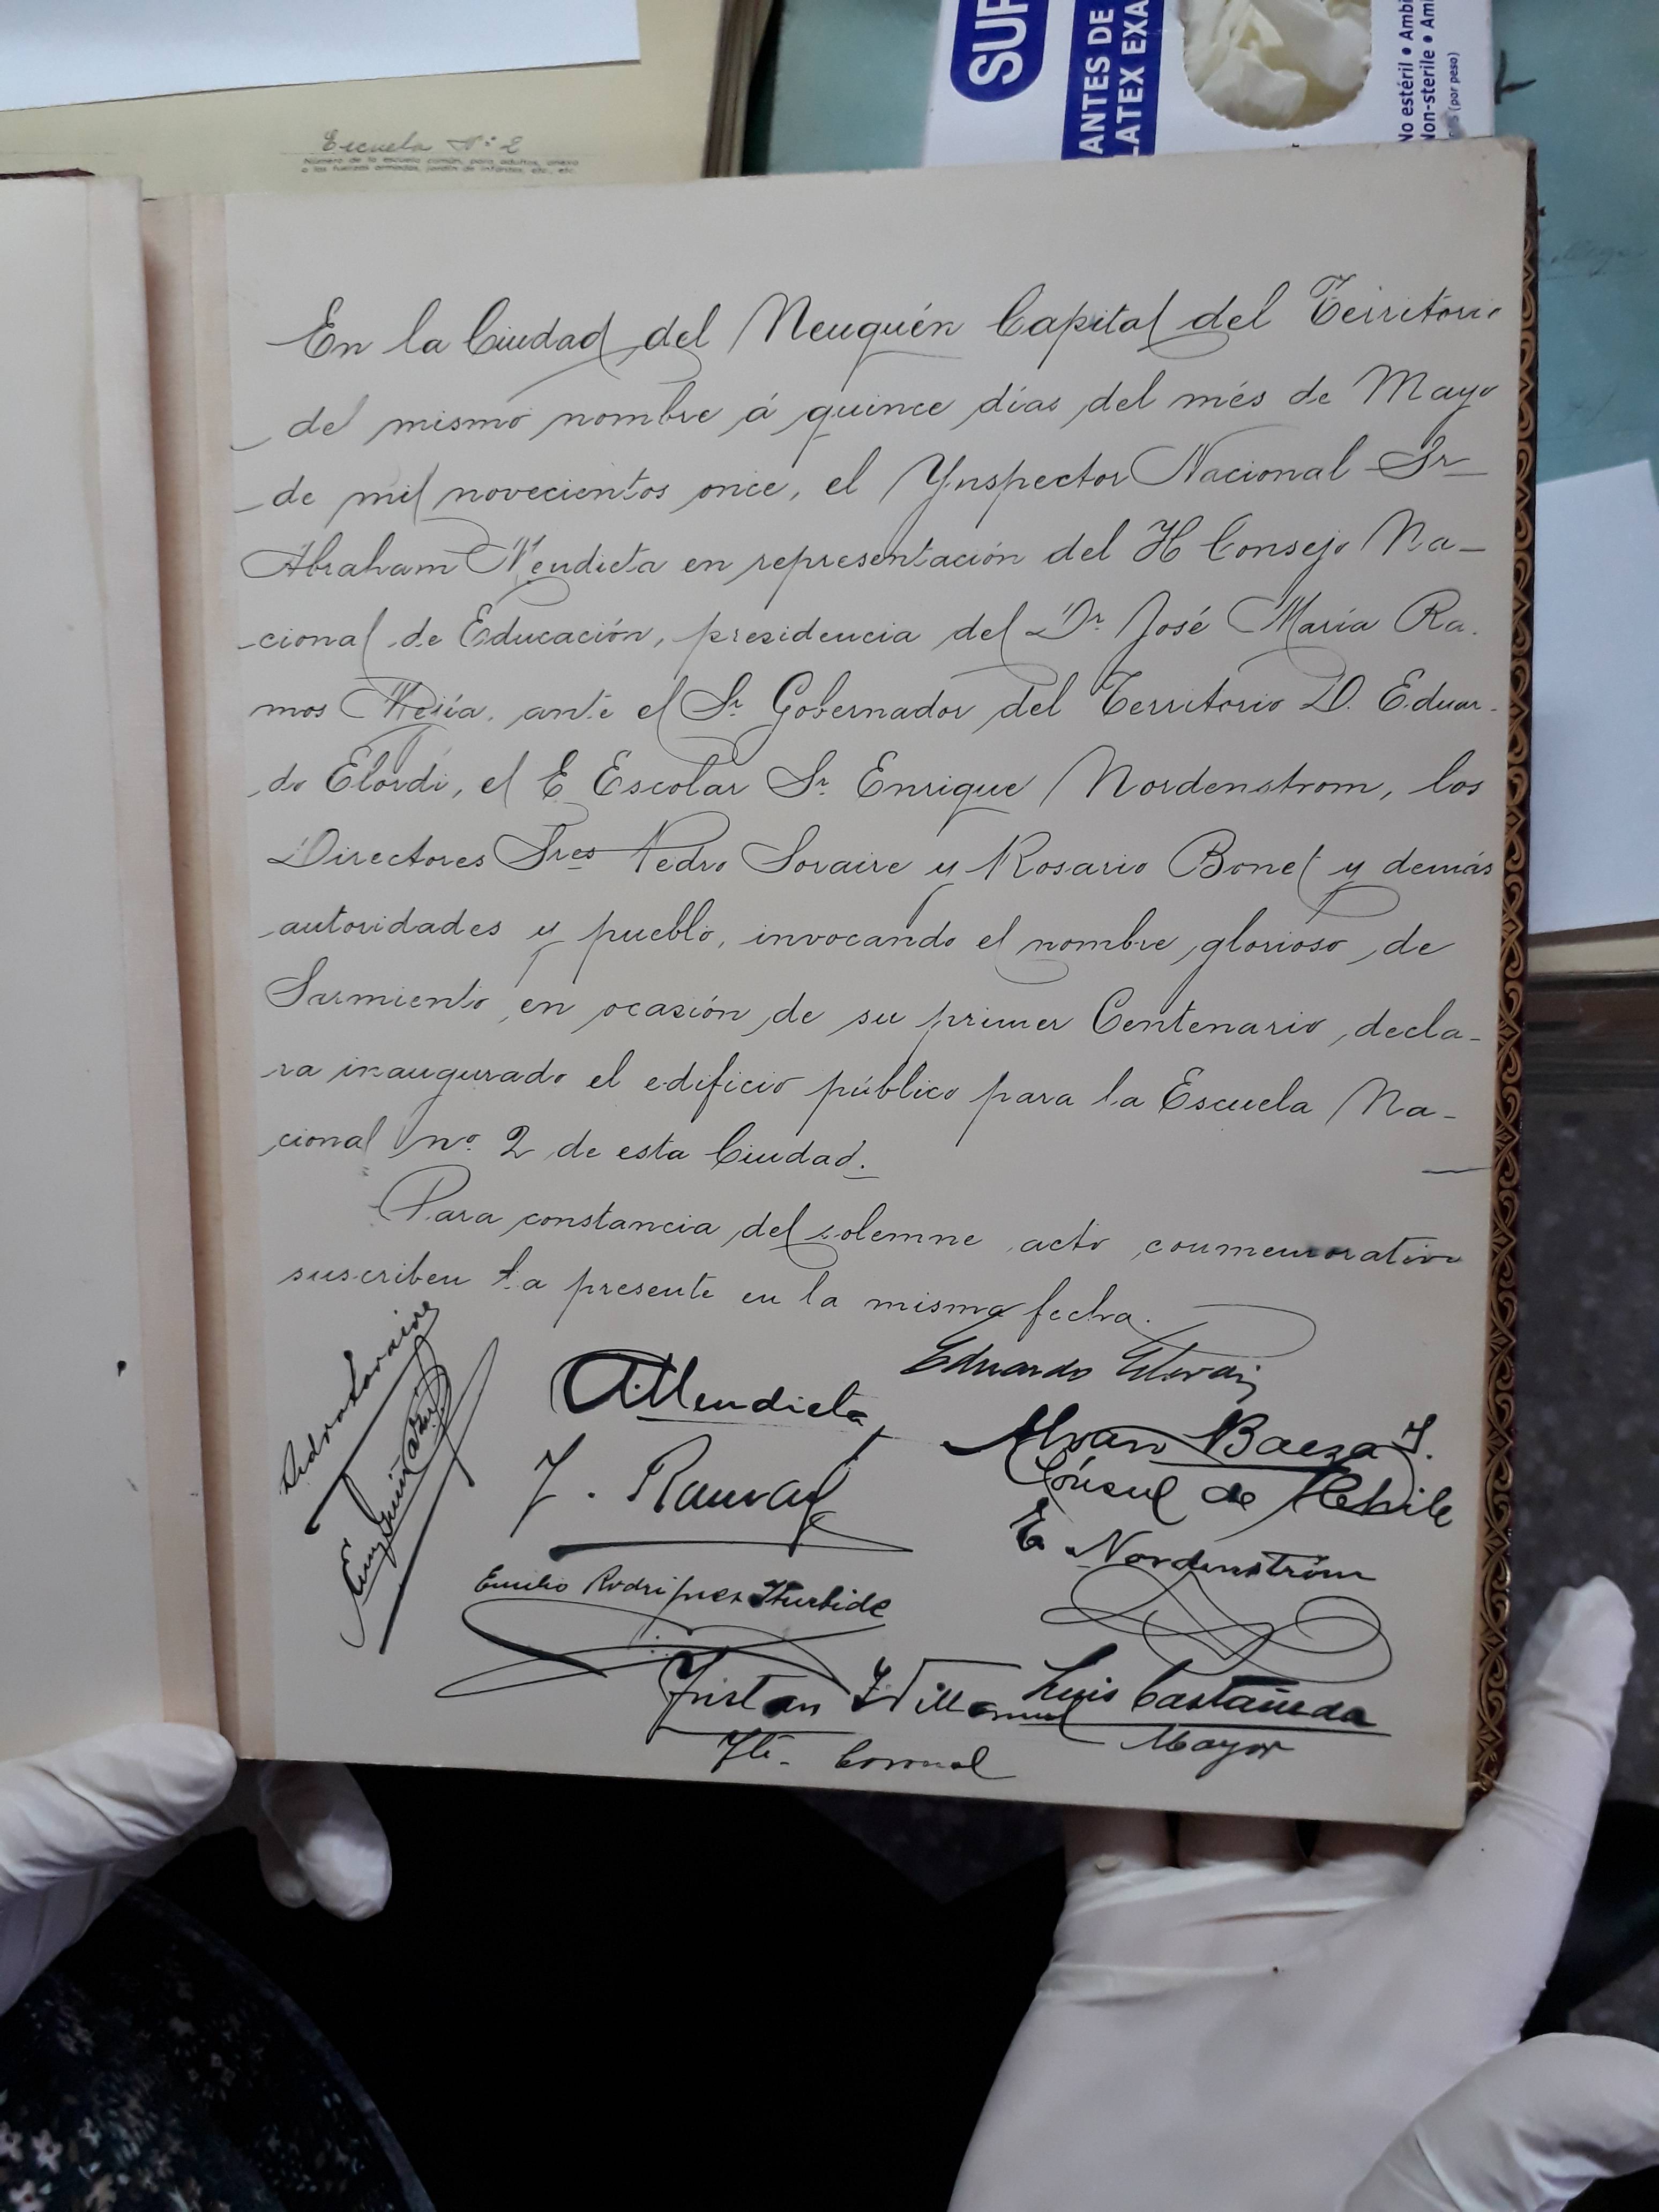 Escuela Nº 2
Número de la escuela común, para adultos, anexa
a las fuerzas armadas, jardín de infantes, etc., etc.
SUP
ANTES DE
LATEX EXA
No estéril • Ambi
Non-sterile • Am
(por peso)
En la Ciudad del Neuquén Capital del Territorio
del mismo nombre á quince días del més de Mayo
de mil novecientos once, el Ynspector Nacional Sr
Abraham Mendieta en representación del H Consejo Na-
cional de Educación, presidencia del Dr José María Ra.
mos Mejía, ante el Sr Gobernador del Territorio D. Eduar-
do Elordi, el E Escolar Sr. Enrique Nordenstrom, los
Directores Sres Pedro Soraire y Rosario Bonet y demás
autoridades y pueblo, invocando el nombre glorioso de
Sarmiento en ocasión de su primer Centenario decla-
ra inaugurado el edificio público para la Escuela Na-
cional nº 2 de esta Ciudad.
Para constancia del solemne acto conmemorativo
suscriben la presente en la misma fecha.
Pedro Soraire
Eduardo Elordi
A. Mendieta
Baeza
Cónsul de Chile
E. Nordenström
Emilio Rodriguez Iturbide
Tristan
Luis Castañeda
Mayor
Tte. Coronel